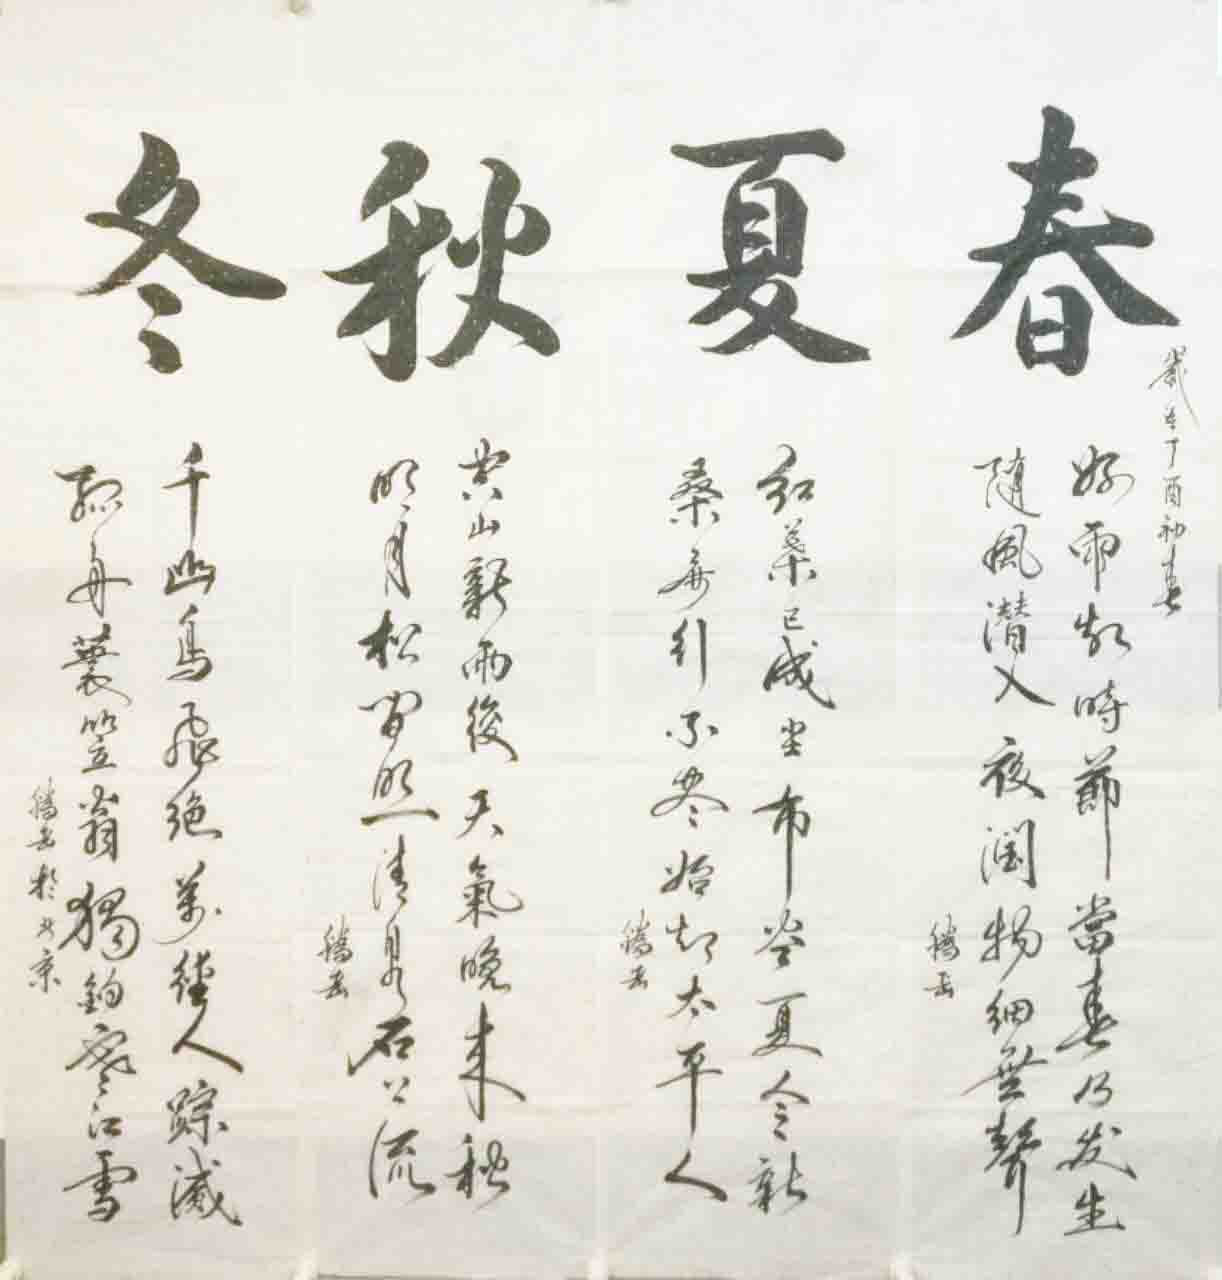 春
歲在丁酉初春
好雨知時節當春乃发生
随風潜入夜润物细無聲
夏
红葉已成尘布谷夏令新
桑麻行不尽始知太平人
秋
空山新雨後天氣晚来秋
明月松间照清泉石上流
冬
千山鳥飛绝萬徑人踪滅
孤舟蓑笠翁獨钓寒江雪
於北京